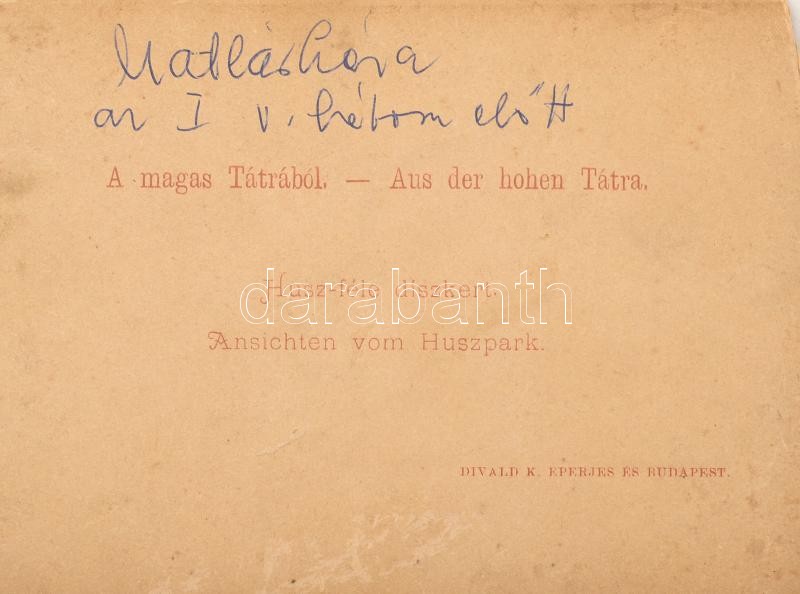 Matlárháza
az I v. háború előtt
A magas Tátrából. — Aus der hohen Tátra.
Husz-féle diszkert.
darabanth
Ansichten vom Huszpark.
DIVALD K. EPERJES ÉS BUDAPEST.